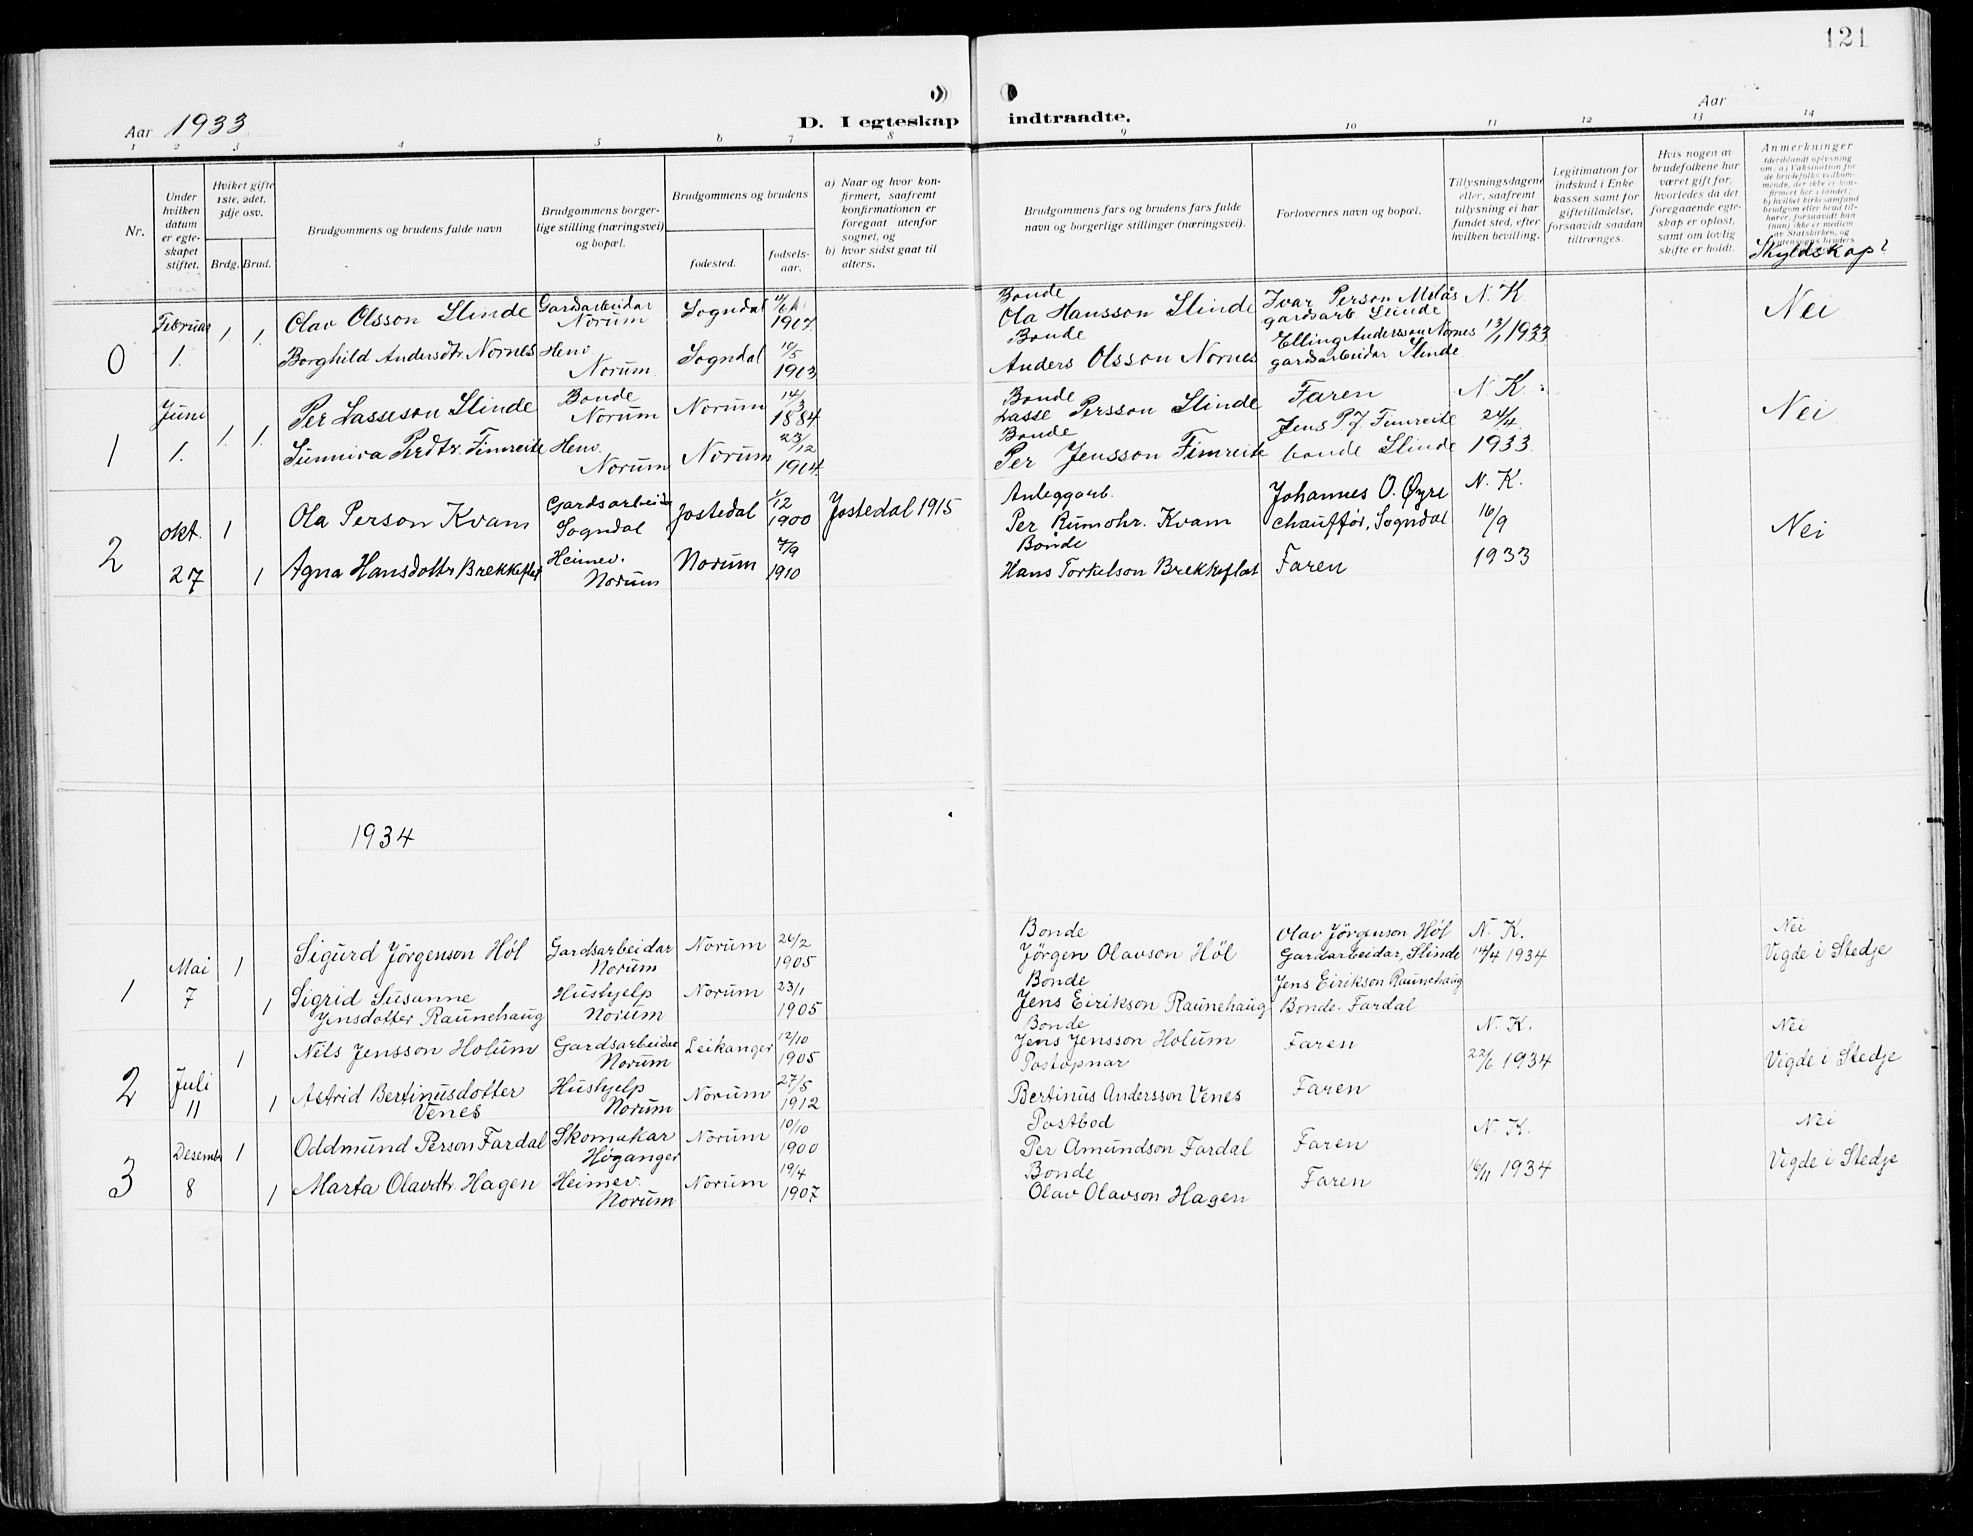 121
Aar 1933
D. I egteskap indtraadte.
Aar
1 2 3 4 5 6 7 8 9 10 11 12 13 14
Nr.
Under hvilken datum er egteskapet stiftet.
Hvilket gifte 1ste, 2det, 3dje osv.
Brdg. Brud.
Brudgommens og brudens fulde navn
Brudgommens borgerlige stilling (næringsvei) og bopæl.
Brudgommens og brudens
fødested.
fødselsaar.
a) Naar og hvor konfirmert, saafremt konfirmationen er foregaat utenfor sognet, og
b) hvor sidst gaat til alters.
Brudgommens fars og brudens fars fulde navn og borgerlige stillinger (næringsvei).
Forlovernes navn og bopæl.
Tillysningsdagene eller, saafremt tillysning ei har fundet sted, efter hvilken bevilling.
Legitimation for indskud i Enkekassen samt for giftetilladelse, forsaavidt saadan tiltrænges.
Hvis nogen av brudefolkene har været gift før, hvorledes da det foregaaende egteskap er opløst, samt om lovlig skifte er holdt.
Anmerkninger
Skyldskap?
Februar 1 1 Olav Olsson Slinde Gardarbeidar Norum Sogndal 1907. Bonde Ola Hansson Slinde Ivar Person Melås gardsarb Slinde N. K. Nei
0 1. Borghild Andersdtr. Nornes Heiv Norum. Sogndal 10/5 1903 Bonde Anders Olsson Nornes Elling Andersson Nornes gardsarbeidar Slinde 13/1 1933
Juni Per Lasseson Slinde Bonde Norum Norum 14/3 1884. Bonde Lasse Persson Slinde Faren N. K. Nei
1 1. 1. 1. Sunniva Perdtr. Fimreite Heiv. Norum Norum 23/12 1904. Bonde Per Jensson Fimreite Jens P. J. Fimreite bonde Slinde 24/4. 1933.
okt. 1 Ola Person Kvam Gardsarbeidar Sogndal Jostedal 1/12 1900 Jostedal 1915 Anleggarb. Per Rumohr. Kvam Johannes O. Øyre chauffør, Sogndal N. K. 16/9 Nei
2 27 1 Agna Hansdottr Brekkeflat Heimev. Norum Norum 7/9 1910 Bonde Hans Torkelson Brekkeflat Faren 1933
1934
Mai 1 Sigurd Jörgenson Höl Gardsarbeidar Norum Norum 26/2 1905 Bonde Jörgen Olavson Höl Olav Jörgenson Höl Gardarbeidar, Slinde N. K. 14/4 1934 Nei Vigde i Stedje
1 7 1 Sigrid Susanne Jensdotter Raunehaug Hushjelp Norum Norum 23/1 1905 Bonde Jens Eirikson Raunehaug Jens Eirikson Raunehaug Bonde. Fardal
1 Nils Jensson Holum Gardsarbeidar Norum Leikanger 12/10 1905 Bonde Jens Jensson Holum Faren N. K. 22/6 1934 Nei Vigde i Stedje
2 Juli 11 1 Astrid Bertinusdotter Venes Hushjelp Norum Norum 27/5 1912 Postopnar Bertinus Andersson Venes Faren
Desemb 1 Oddmund Person Fardal Skomakar Høganger Norum 10/10 1900 Postbod Per Amundson Fardal Faren N. K. Nei
3 8 1 Marta Olavdtr. Hagen Heimev. Norum Norum 19/4 1907 Bonde Olav Olavson Hagen Faren 16/11 1934 Vigde i Stedje